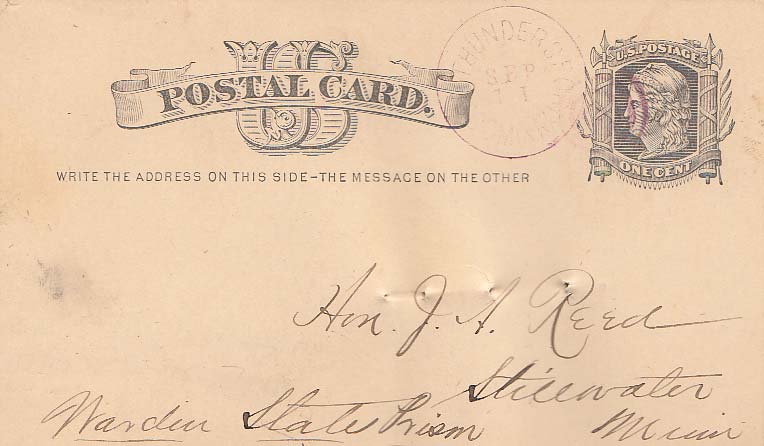 US
POSTAL CARD.
WRITE THE ADDRESS ON THIS SIDE-THE MESSAGE ON THE OTHER
SEP
11
U.S. POSTAGE
ONE CENT
Hon. J. A. Reed
Stillwater
Warden State Prison Minn